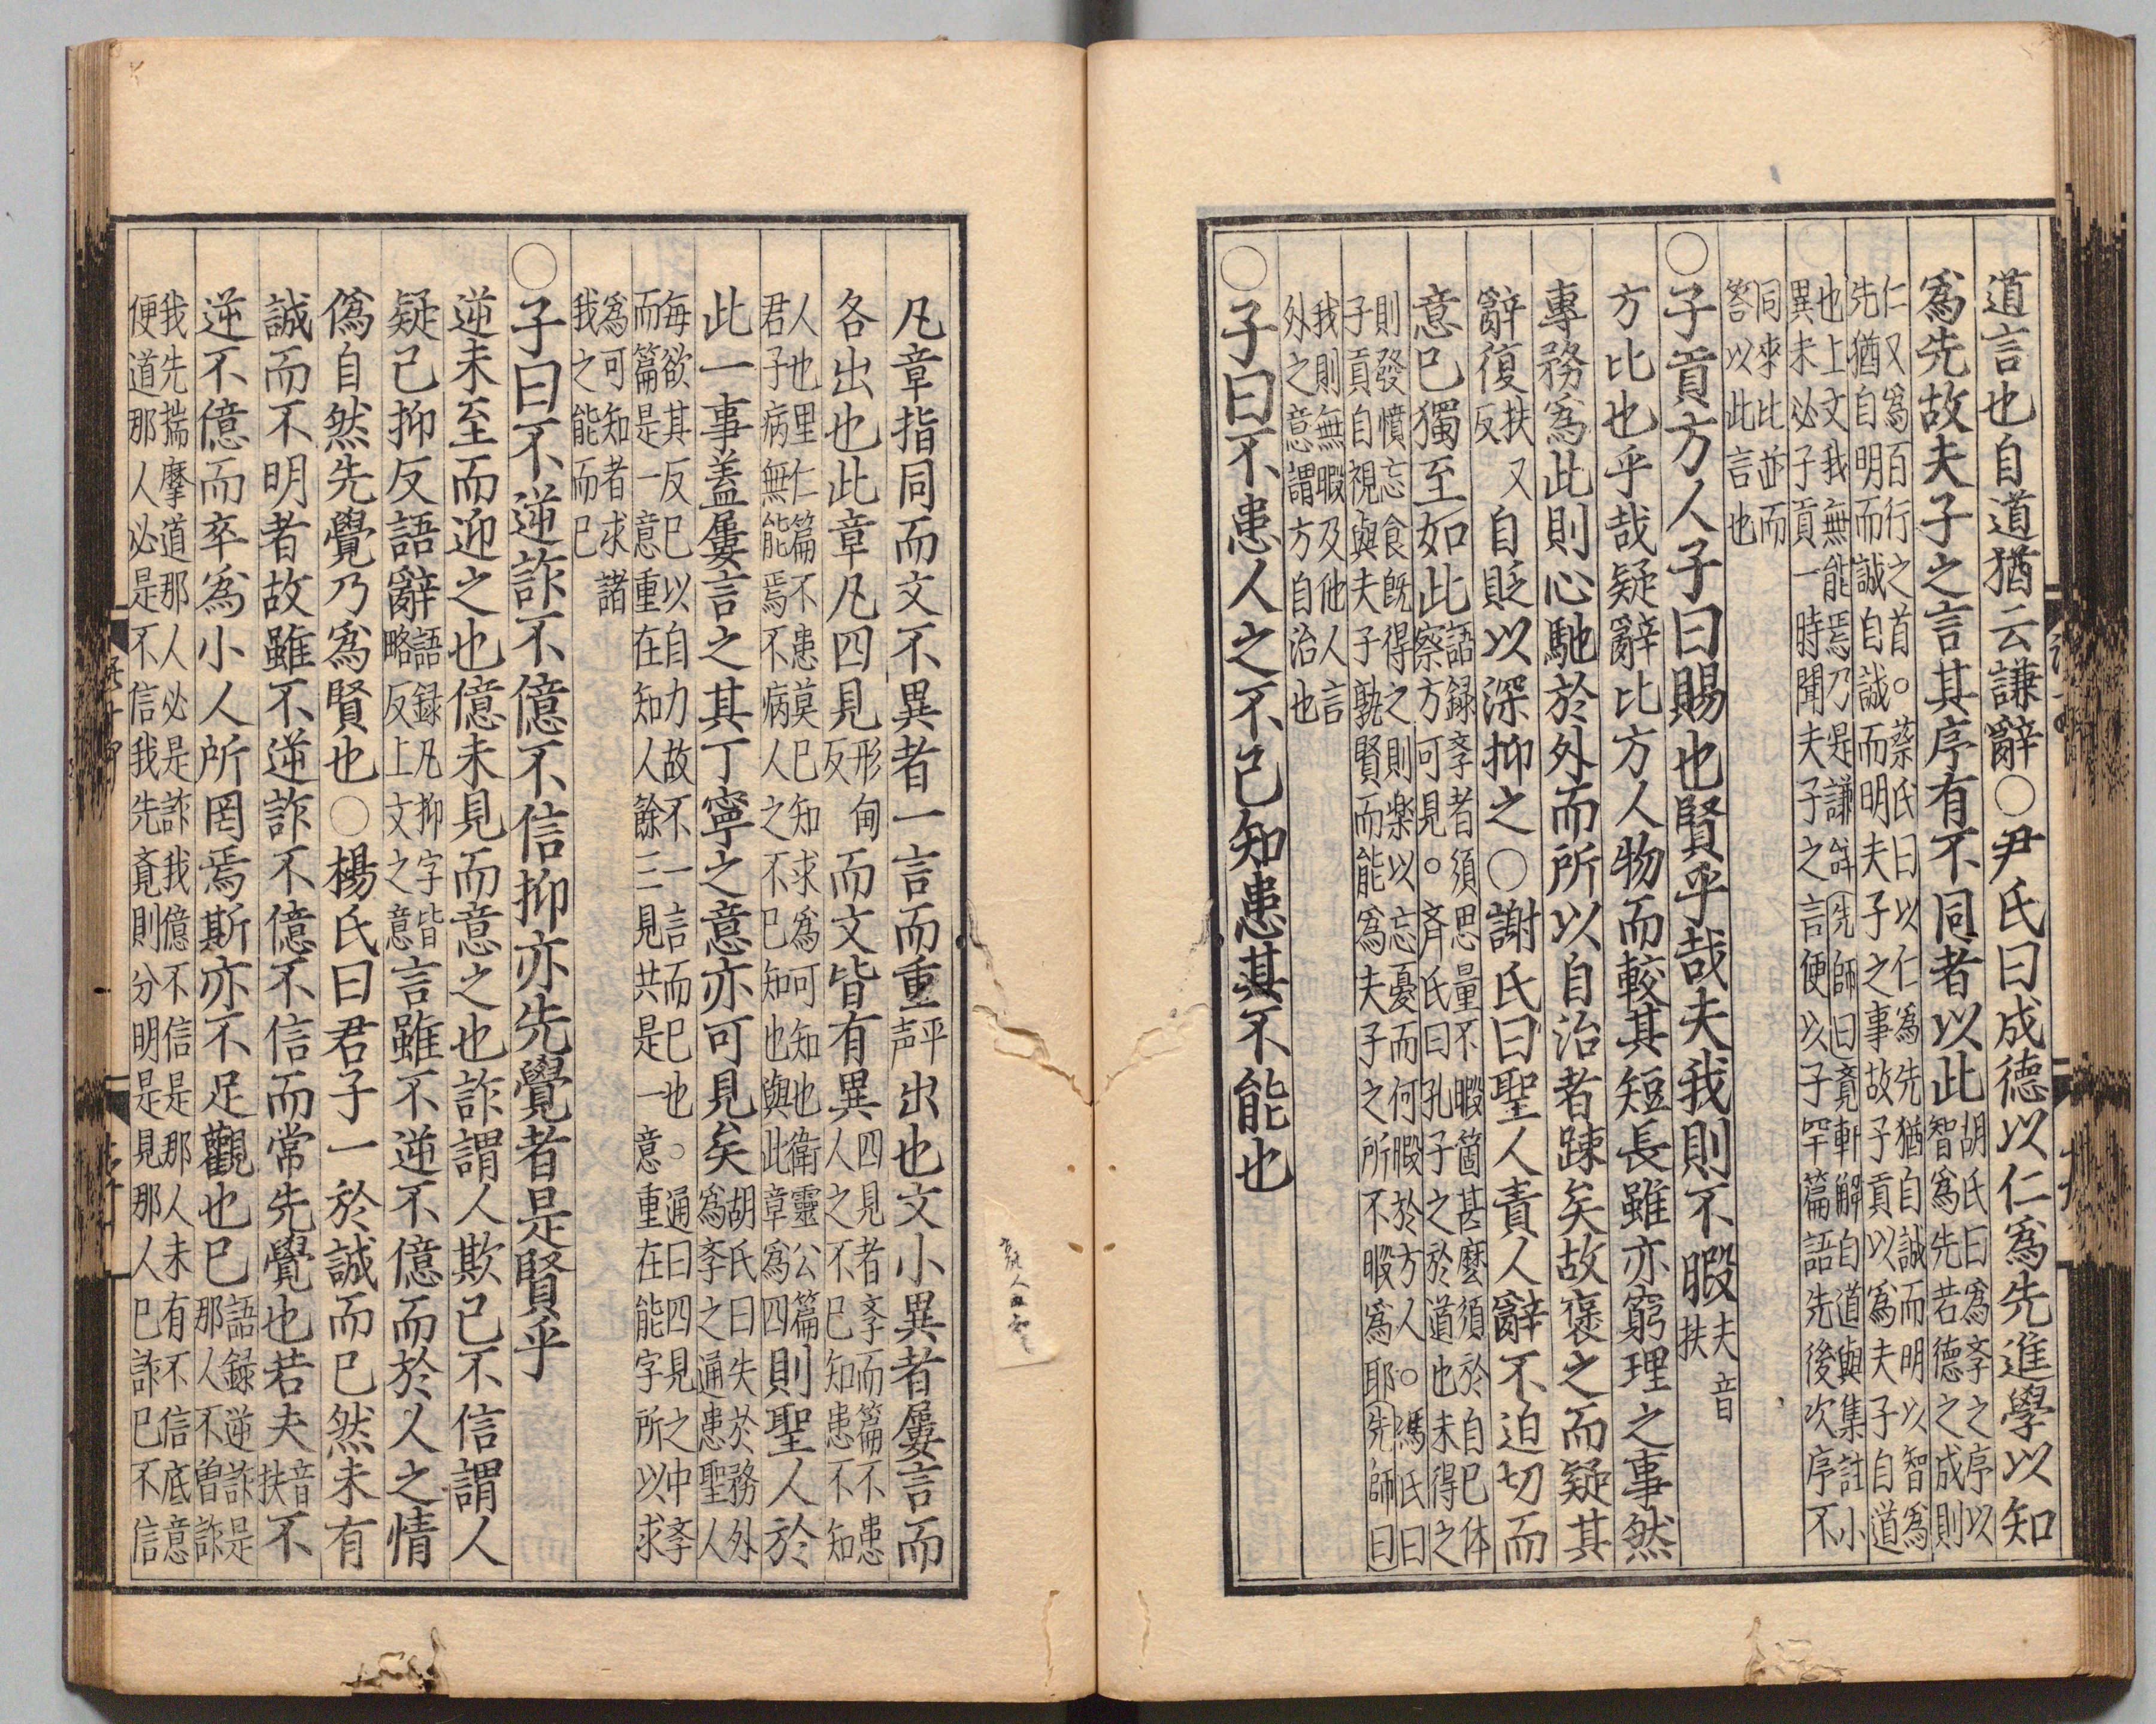 道言也自道猶云謙辭○尹氏曰成德以仁爲先進學以知
爲先故夫子之言其序有不同者以此
胡氏曰爲斈之序以
智爲先若德之成則
仁又爲百行之首○蔡氏曰以仁爲先猶自誠而明以智爲
先猶自明而誠自誠而明夫子之事故子貢以爲夫子自道
也上文我無能焉乃是謙辝先師曰竟軒解自道與集註小
異未必子貢一時聞夫子之言便以子罕篇語先後次序不
同來比並而
答以此言也
○子貢方人子曰賜也賢乎哉夫我則不暇
夫音
扶
方比也乎哉疑辭比方人物而較其短長雖亦窮理之事然
專務爲此則心馳於外而所以自治者踈矣故褒之而疑其
辭復
扶又
反
自貶以深抑之○謝氏曰聖人責人辭不迫切而
意已獨至如此
語録斈者須思量不暇箇甚麽須於自已体
察方可見○斉氏曰孔子之於道也未得之
則發憤忘食旣得之則楽以忘憂而何暇於方人○馮氏曰
子貢自視與夫子孰賢而能爲夫子之所不暇爲耶先師曰
我則無暇及他人言
外之意謂方自治也
○子曰不患人之不己知患其不能也
凡章指同而文不異者一言而重
平
声
出也文小異者屢言而
各出也此章凡四見
形甸
反
而文皆有異
四見者斈而篇不患
人之不已知患不知
人也里仁篇不患莫已知求爲可知也衛靈公篇
君子病無能焉不病人之不已知也與此章爲四
則聖人於
此一事盖屢言之其丁寧之意亦可見矣
胡氏曰失於務外
爲斈之通患聖人
每欲其反已以自力故不一言而已也○通曰四見之中斈
而篇是一意重在知人餘三見共是一意重在能字所以求
爲可知者求諸
我之能而已
○子曰不逆詐不億不信抑亦先覺者是賢乎
逆未至而迎之也億未見而意之也詐謂人欺己不信謂人
疑己抑反語辭
語録凡抑字皆
略反上文之意
言雖不逆不億而於人之情
僞自然先覺乃爲賢也○楊氏曰君子一於誠而已然未有
誠而不明者故雖不逆詐不億不信而常先覺也若夫
音
扶
不
逆不億而卒爲小人所罔焉斯亦不足觀也已
語録逆詐是
那人不曾詐
我先揣摩道那人必是詐我億不信是那人未有不信底意
便道那人必是不信我先竟則分明是見那人已詐已不信